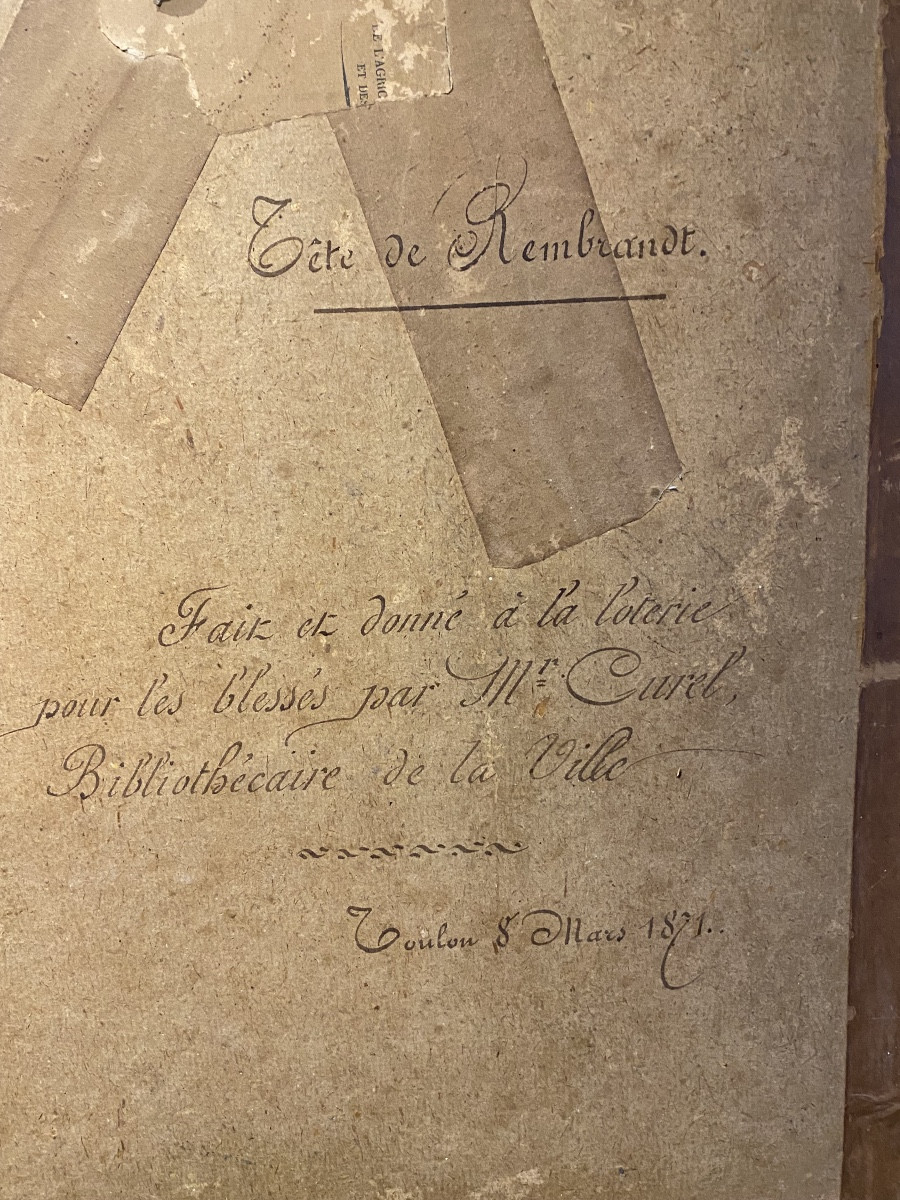 LE L'AGRIC
ET DES
Tête de Rembrandt.
Fait et donné à la loterie
pour les blessés par Mr. Curel,
Bibliothécaire de la Ville
Toulon 8 Mars 1871.